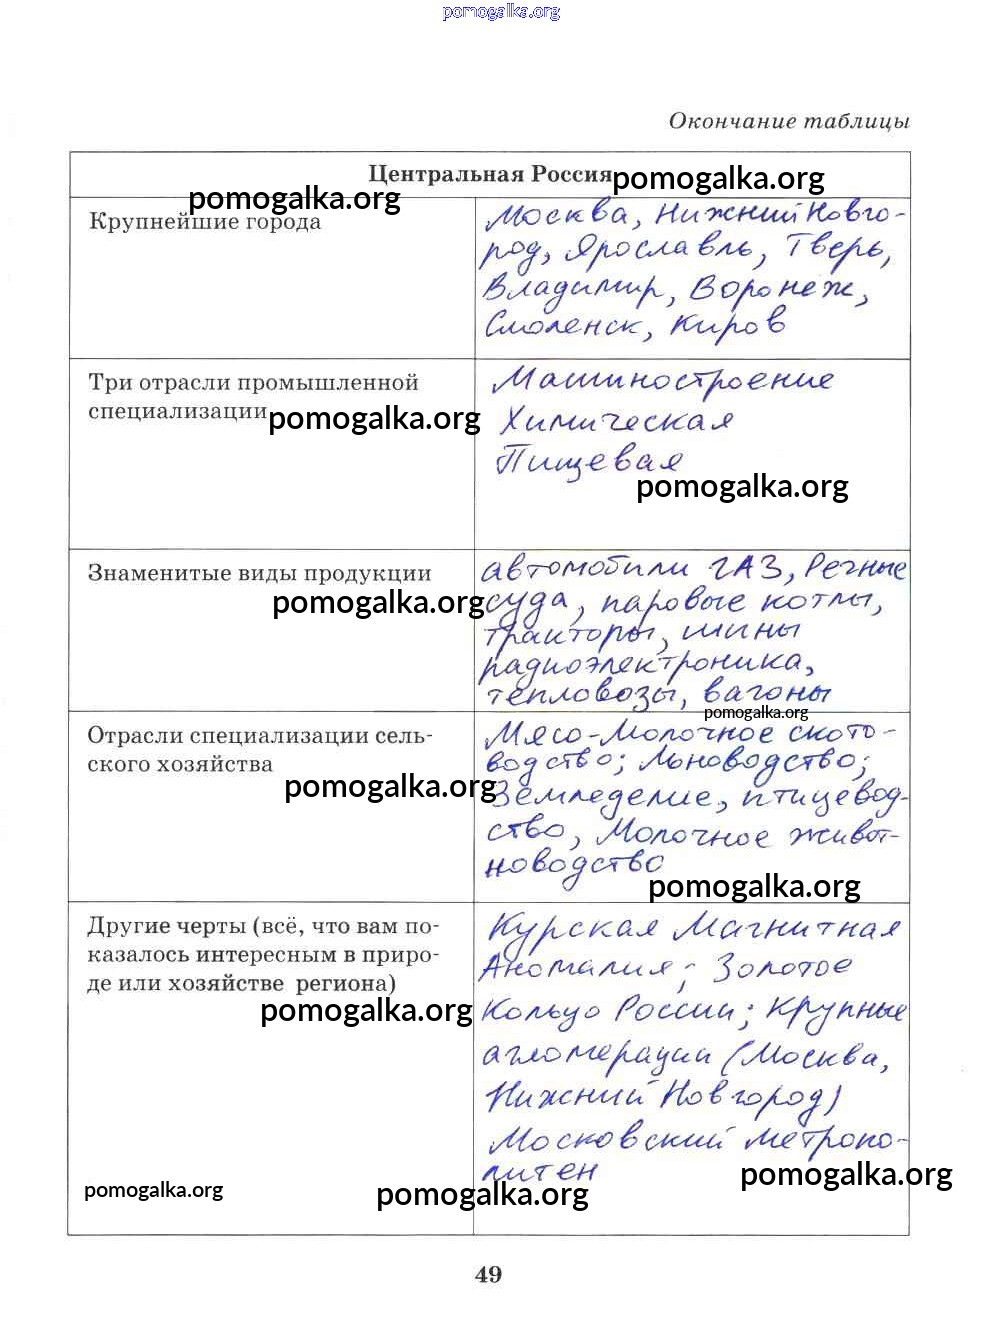 pomogalka.org
Окончание таблицы
Центральная Россия
pomogalka.org
pomogalka.org
Крупнейшие города
Москва, Нижний Новго-
род, Ярославль, Тверь,
Владимир, Воронеж,
Смоленск, Киров
Три отрасли промышленной
специализации
pomogalka.org
Машиностроение
Химическая
Пищевая
pomogalka.org
Знаменитые виды продукции
pomogalka.org
автомобили ГАЗ, Речные
суда, паровые котлы,
тракторы, шины
радиоэлектроника,
тепловозы, вагоны
pomogalka.org
Отрасли специализации сель-
ского хозяйства
pomogalka.org
Мясо-Молочное ското-
водство; Льноводство;
Земледелие, птицевод-
ство, Молочное живот-
новодство
pomogalka.org
Другие черты (всё, что вам по-
казалось интересным в приро-
де или хозяйстве региона)
pomogalka.org
Курская Магнитная
Аномалия; Золотое
Кольцо России; Крупные
агломерации (Москва,
Нижний Новгород)
Московский метропо-
литен
pomogalka.org
pomogalka.org
pomogalka.org
49